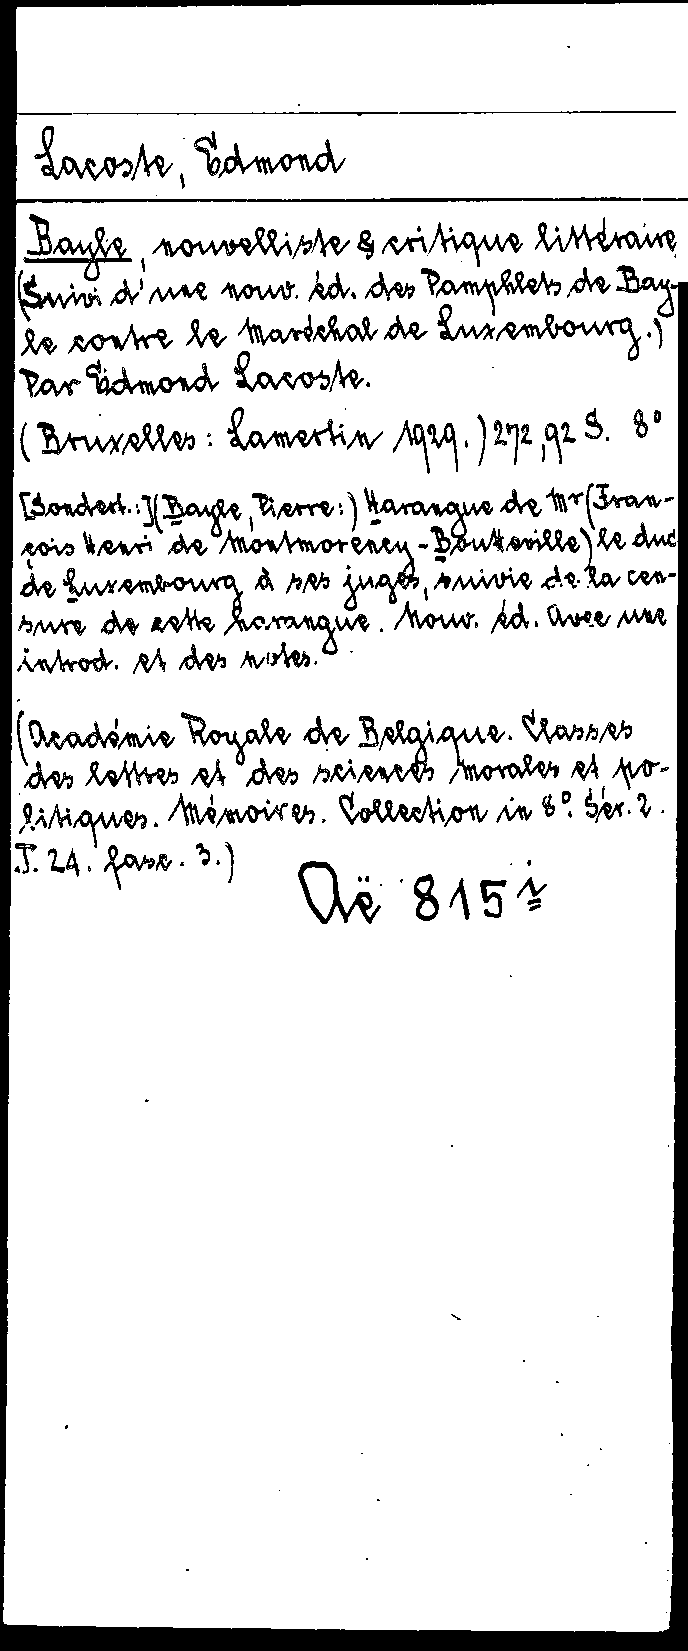 Lacoste, Edmond
Bayle, nouvelliste & critique littéraire
(Suivi d'une nouv. éd. des Pamphlets de Bay-
le contre le Maréchal de Luxembourg.)
Par Edmond Lacoste.
(Bruxelles: Lamertin 1929.) 272,92 S. 8°
[Sondert.:] (Bayle, Pierre:) Harangue de Mr (Fran-
çois Henri de Montmorency-Boutteville) le duc
de Luxembourg à ses juges, suivie de la cen-
sure de cette harangue. Nouv. éd. Avec une
introd. et des notes.
(Académie Royale de Belgique. Classes
des lettres et des sciences morales et po-
litiques. Mémoires. Collection in 8°. Sér. 2.
T. 24. fasc. 3.)
Aë 815 i